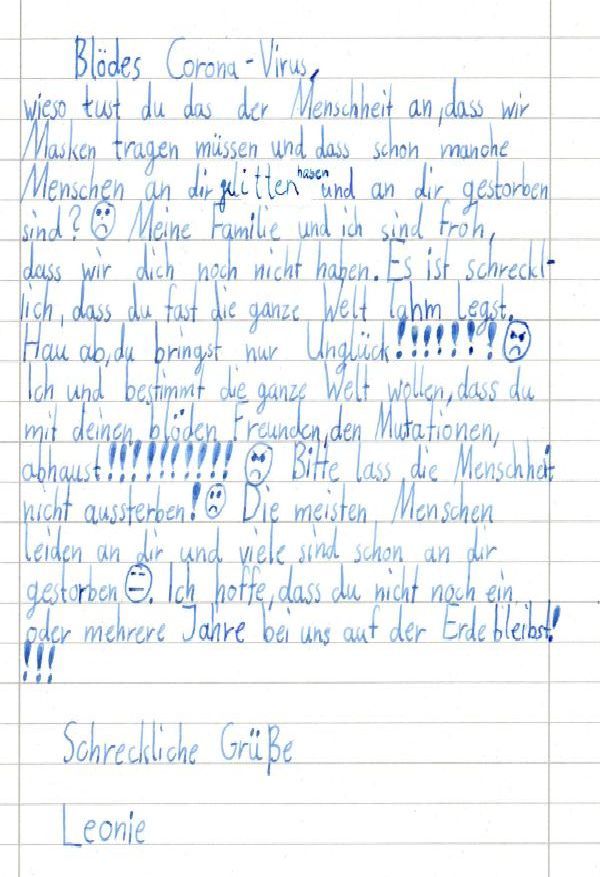 Blödes Corona-Virus,
wieso tust du das der Menschheit an, dass wir
Masken tragen müssen und dass schon manche
Menschen an dir gelitten haben und an dir gestorben
sind? ☹ Meine Familie und ich sind froh,
dass wir dich noch nicht haben. Es ist schreckl-
lich, dass du fast die ganze Welt lahm legst.
Hau ab, du bringst nur Unglück!!!!!!! ☹
Ich und bestimmt die ganze Welt wollen, dass du
mit deinen blöden Freunden, den Mutationen,
abhaust!!!!!!!!!! ☹ Bitte lass die Menschheit
nicht aussterben! ☹ Die meisten Menschen
leiden an dir und viele sind schon an dir
gestorben 😐. Ich hoffe, dass du nicht noch ein
oder mehrere Jahre bei uns auf der Erde bleibst!
!!!
Schreckliche Grüße
Leonie